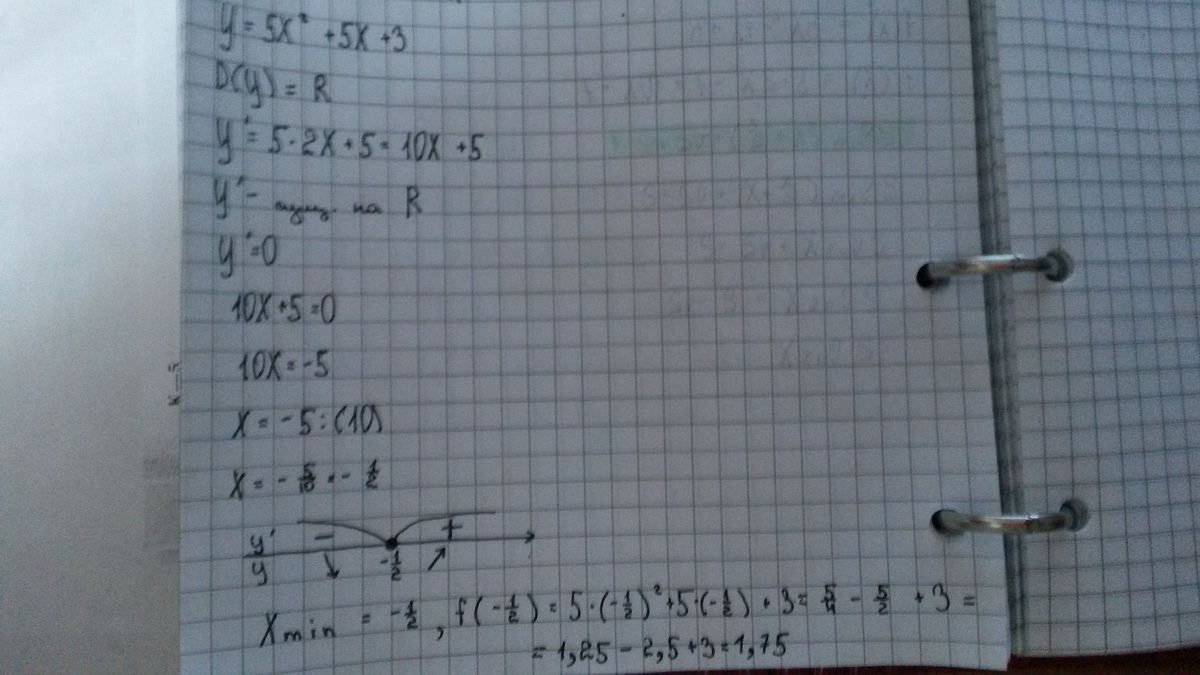 y = 5x² + 5x + 3
D(y) = R
y' = 5·2x + 5 = 10x + 5
y' - сущ. на R
y' = 0
10x + 5 = 0
10x = -5
x = -5 : (10)
x = - 5/10 = - 1/2
y' - +
y -1/2
Xmin = -1/2, f(-1/2) = 5·(-1/2)² + 5·(-1/2) + 3 = 5/4 - 5/2 + 3 =
= 1,25 - 2,5 + 3 = 1,75